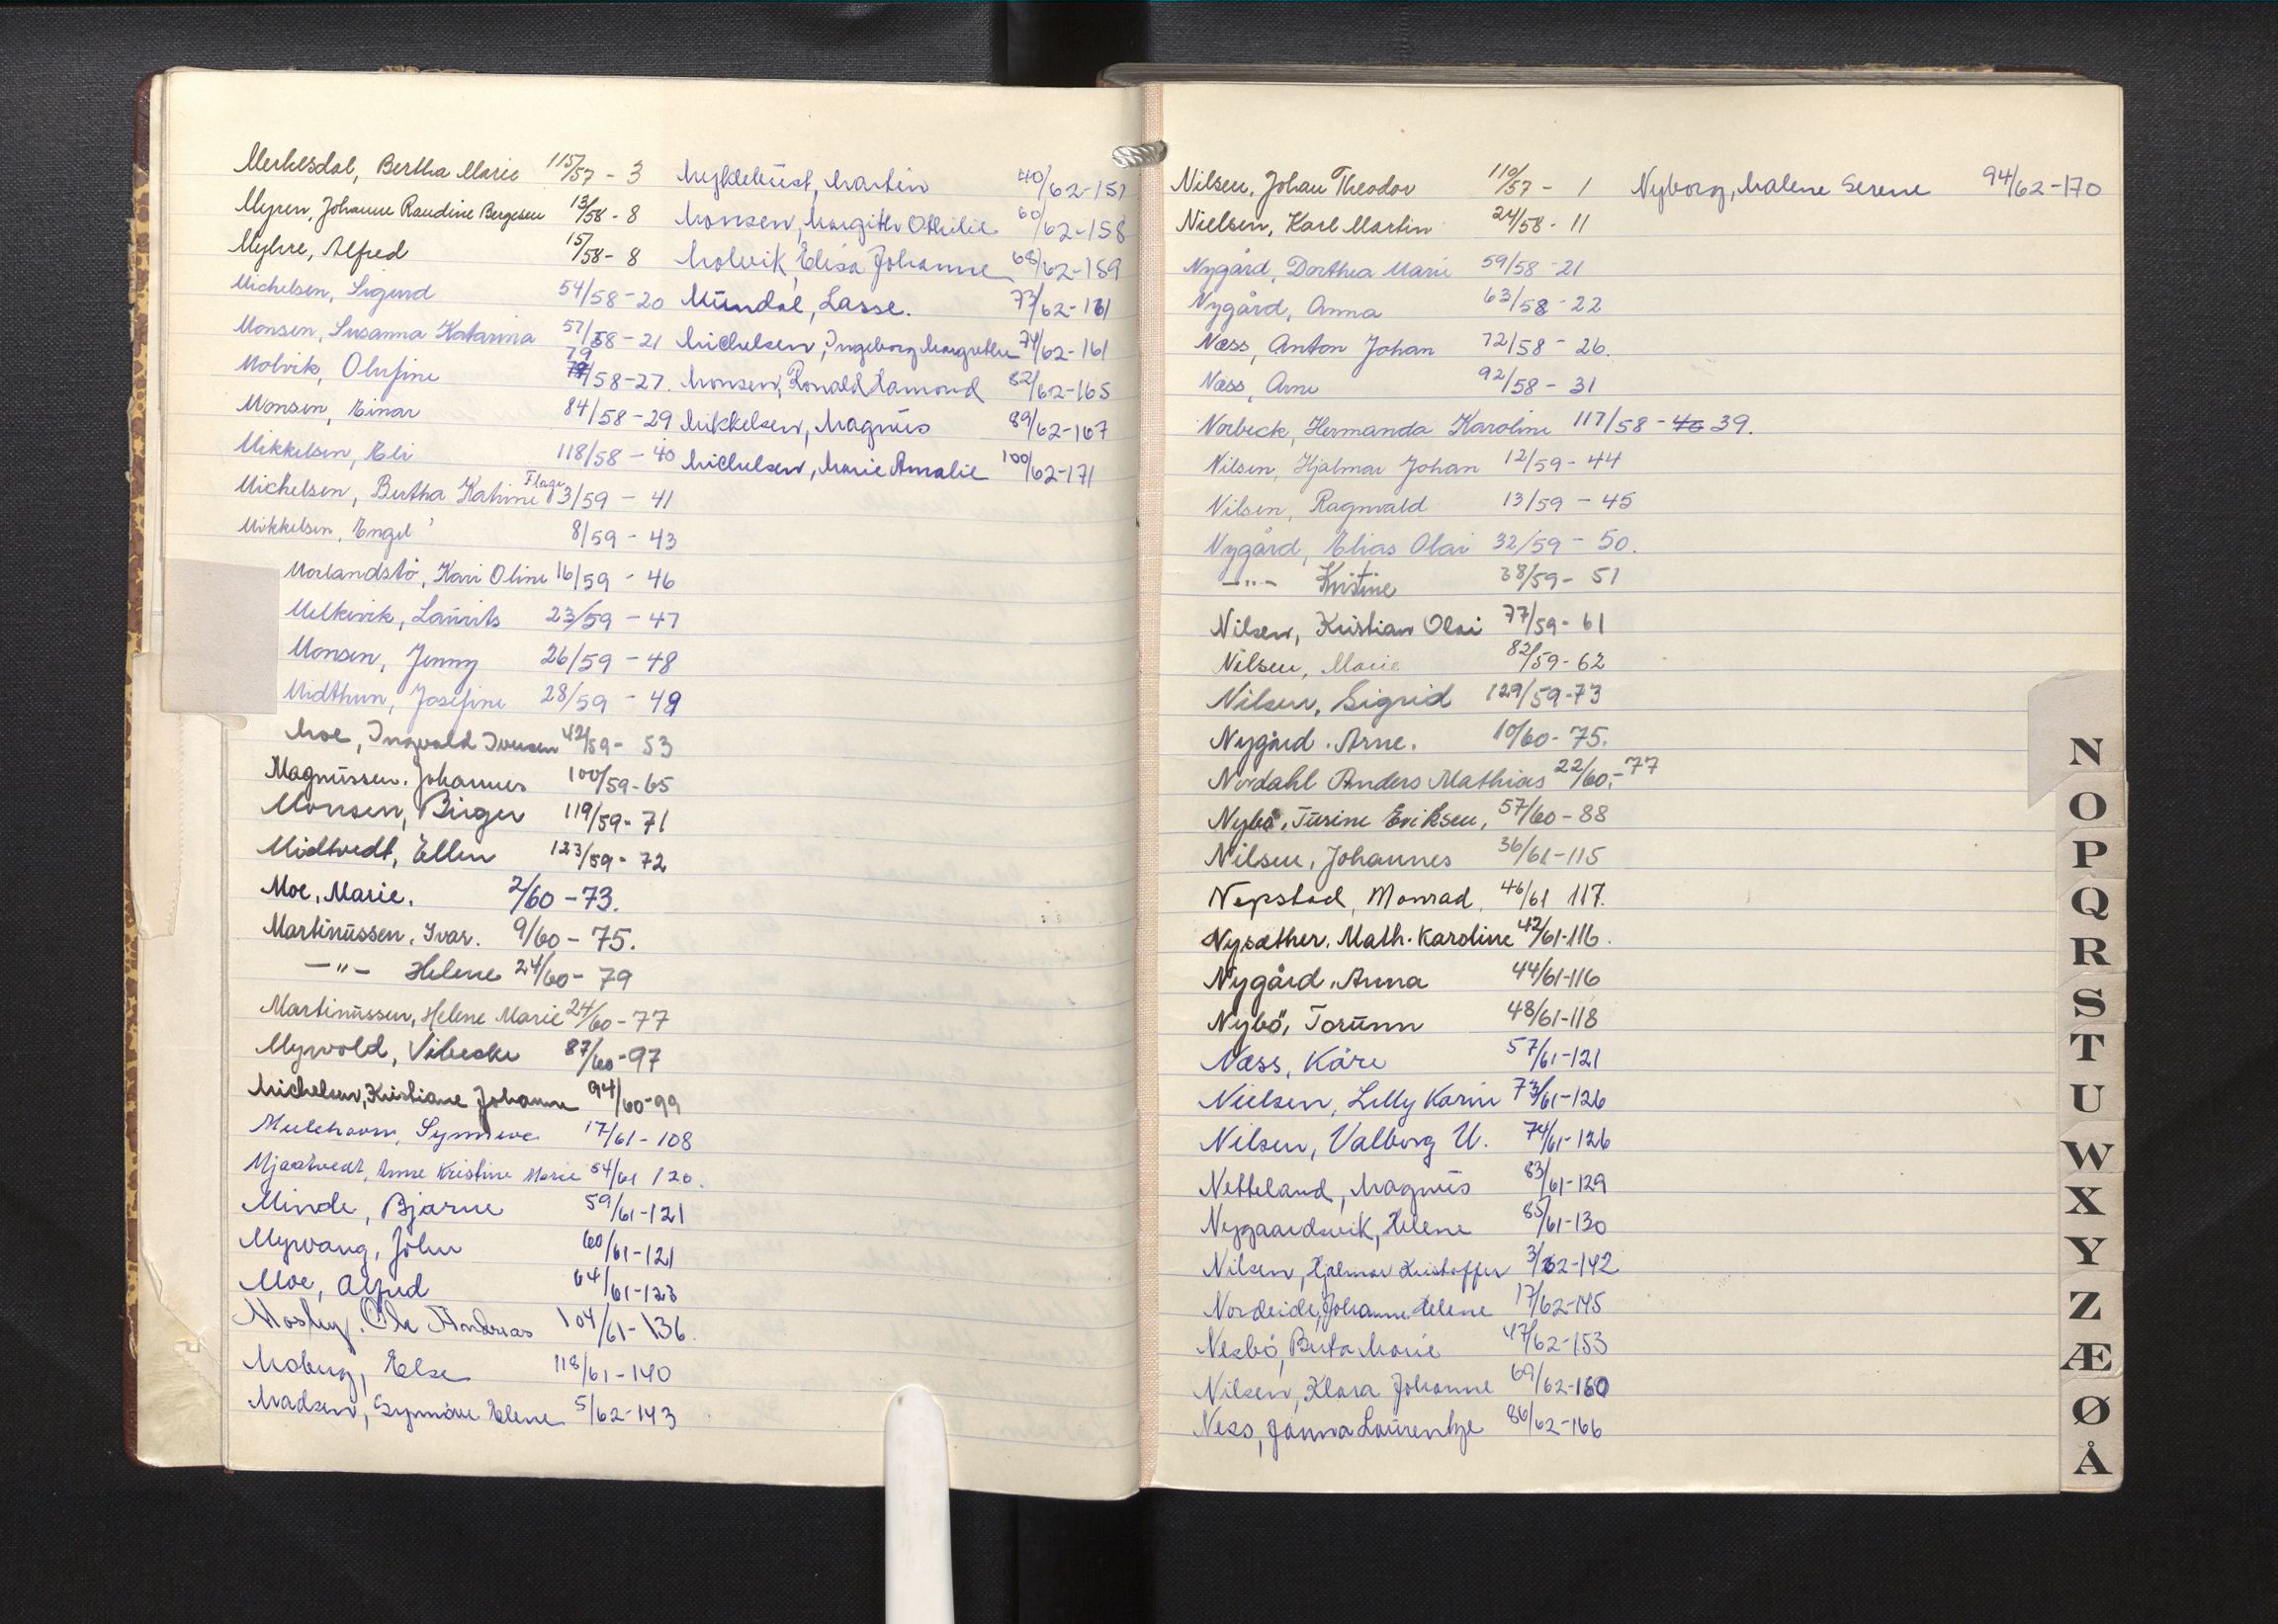 Merkesdal, Bertha Marie 115/57 - 3
Myren, Johanne Raudine Bergesen 13/58 - 8
Myhre, Alfred 15/58 - 8
Michelsen, Sigurd 54/58 - 20
Monsen, Susanna Katarina 57/58 - 21
Molvik, Olufine 79/58 - 27.
Monsen, Einar 84/58 - 29
Mikkelsen, Eli 118/58 - 40
Michelsen, Bertha Katrine Flage 3/59 - 41
Mikkelsen, Engel 8/59 - 43
Morlandstø, Kari Oline 16/59 - 46
Melkevik, Laurits 23/59 - 47
Monsen, Jenny 26/59 - 48
Midthun, Josefine 28/59 - 49
Moe, Ingvald Iversen 42/59 - 53
Magnussen, Johannes 100/59 - 65
Monsen, Birger 119/59 - 71
Midtvedt, Ellen 123/59 - 72
Moe, Marie. 2/60 - 73.
Martinussen, Ivar. 9/60 - 75.
—"— Helene 24/60 - 79
Martinussen, Helene Marie 24/60 - 77
Myrvold, Vibecke 87/60 - 97
Michelsen, Kristiane Johanne 94/60 - 99
Synnøve 17/61 - 108
Mjaatvedt, Anne Kristine Marie 54/61 120.
Minde, Bjarne 59/61 - 121
Myrvang, John 60/61 - 121
Moe, Alfred 64/61 - 123
Ole Andreas 104/61 - 136.
Moberg, Else 118/61 - 140
Madsen, Synnöve Elene 5/62 - 143
Myklebust, Martin 40/62 - 151
Monsen, Margith Othilie 60/62 - 158
Molvik, Elisa Johanne 68/62 - 159
Mundal, Lasse. 73/62 - 161
Michelsen, Ingeborg Margrethe 74/62 - 161
Monsen, Ronald Hamond 82/62 - 165
Mikkelsen, Magnus 89/62 - 167
Michelsen, Marie Amalie 100/62 - 171
Nilsen, Johan Theodor 110/57 - 1
Nielsen, Karl Martin 24/58 - 11
Nygård, Dorthea Marie 59/58 - 21
Nygård, Anna 63/58 - 22
Næss, Anton Johan 72/58 - 26.
Næss, Arne 92/58 - 31
Norbeck, Hermanda Karoline 117/58 - 40 39.
Nilsen, Hjalmar Johan 12/59 - 44
Nilsen, Ragnvald 13/59 - 45
Nygård, Elias Olai 32/59 - 50.
—"— Kristine 38/59 - 51
Nilsen, Kristian Olai 77/59 - 61
Nilsen, Marie 82/59 - 62
Nilsen, Sigrid 129/59 - 73
Nygård. Arne. 10/60 - 75.
Nordahl Anders Mathias 22/60. - 77
Nybø, Turine Eriksen, 57/60 - 88
Nilsen, Johannes 36/61 - 115
Nepstad, Monrad, 46/61 117.
Nysæther. Math. Karoline 42/61 - 116.
Nygård, Anna 44/61 - 116
Nybö, Torunn 48/61 - 118
Næss, Kåre 57/61 - 121
Nielsen, Lilly Karin 73/61 - 126
Nilsen, Valborg U. 74/61 - 126
Netteland, Magnus 83/61 - 129
Nygaardsvik, Helene 85/61 - 130
Nilsen, Hjalmar Kristoffer 3/62 - 142
Nordeide, Johanne Helene 17/62 - 145
Nesbö, Berta Marie 47/62 - 153
Nilsen, Klara Johanne 69/62 - 160
Ness, Janna Laurentze 86/62 - 166
Nyborg, Malene Serene 94/62 - 170
N
O
P
Q
R
S
T
U
W
X
Y
Z
Æ
Ø
Å